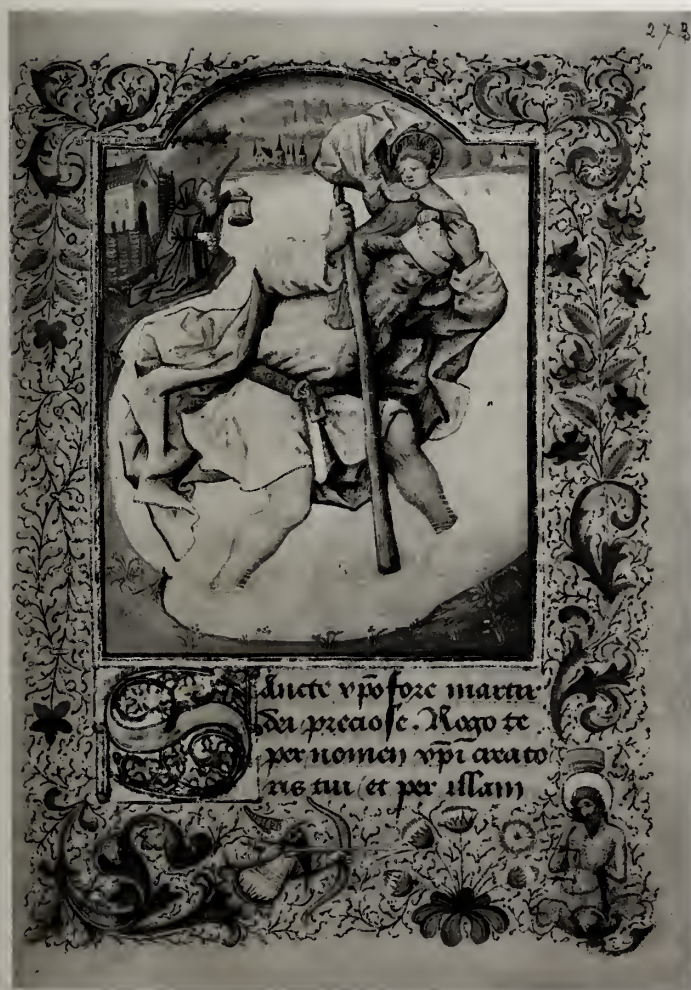 273
Sancte xp̄ofore martir
dei preciose. Rogo te
per nomen xp̄i creato
ris tui et per illam